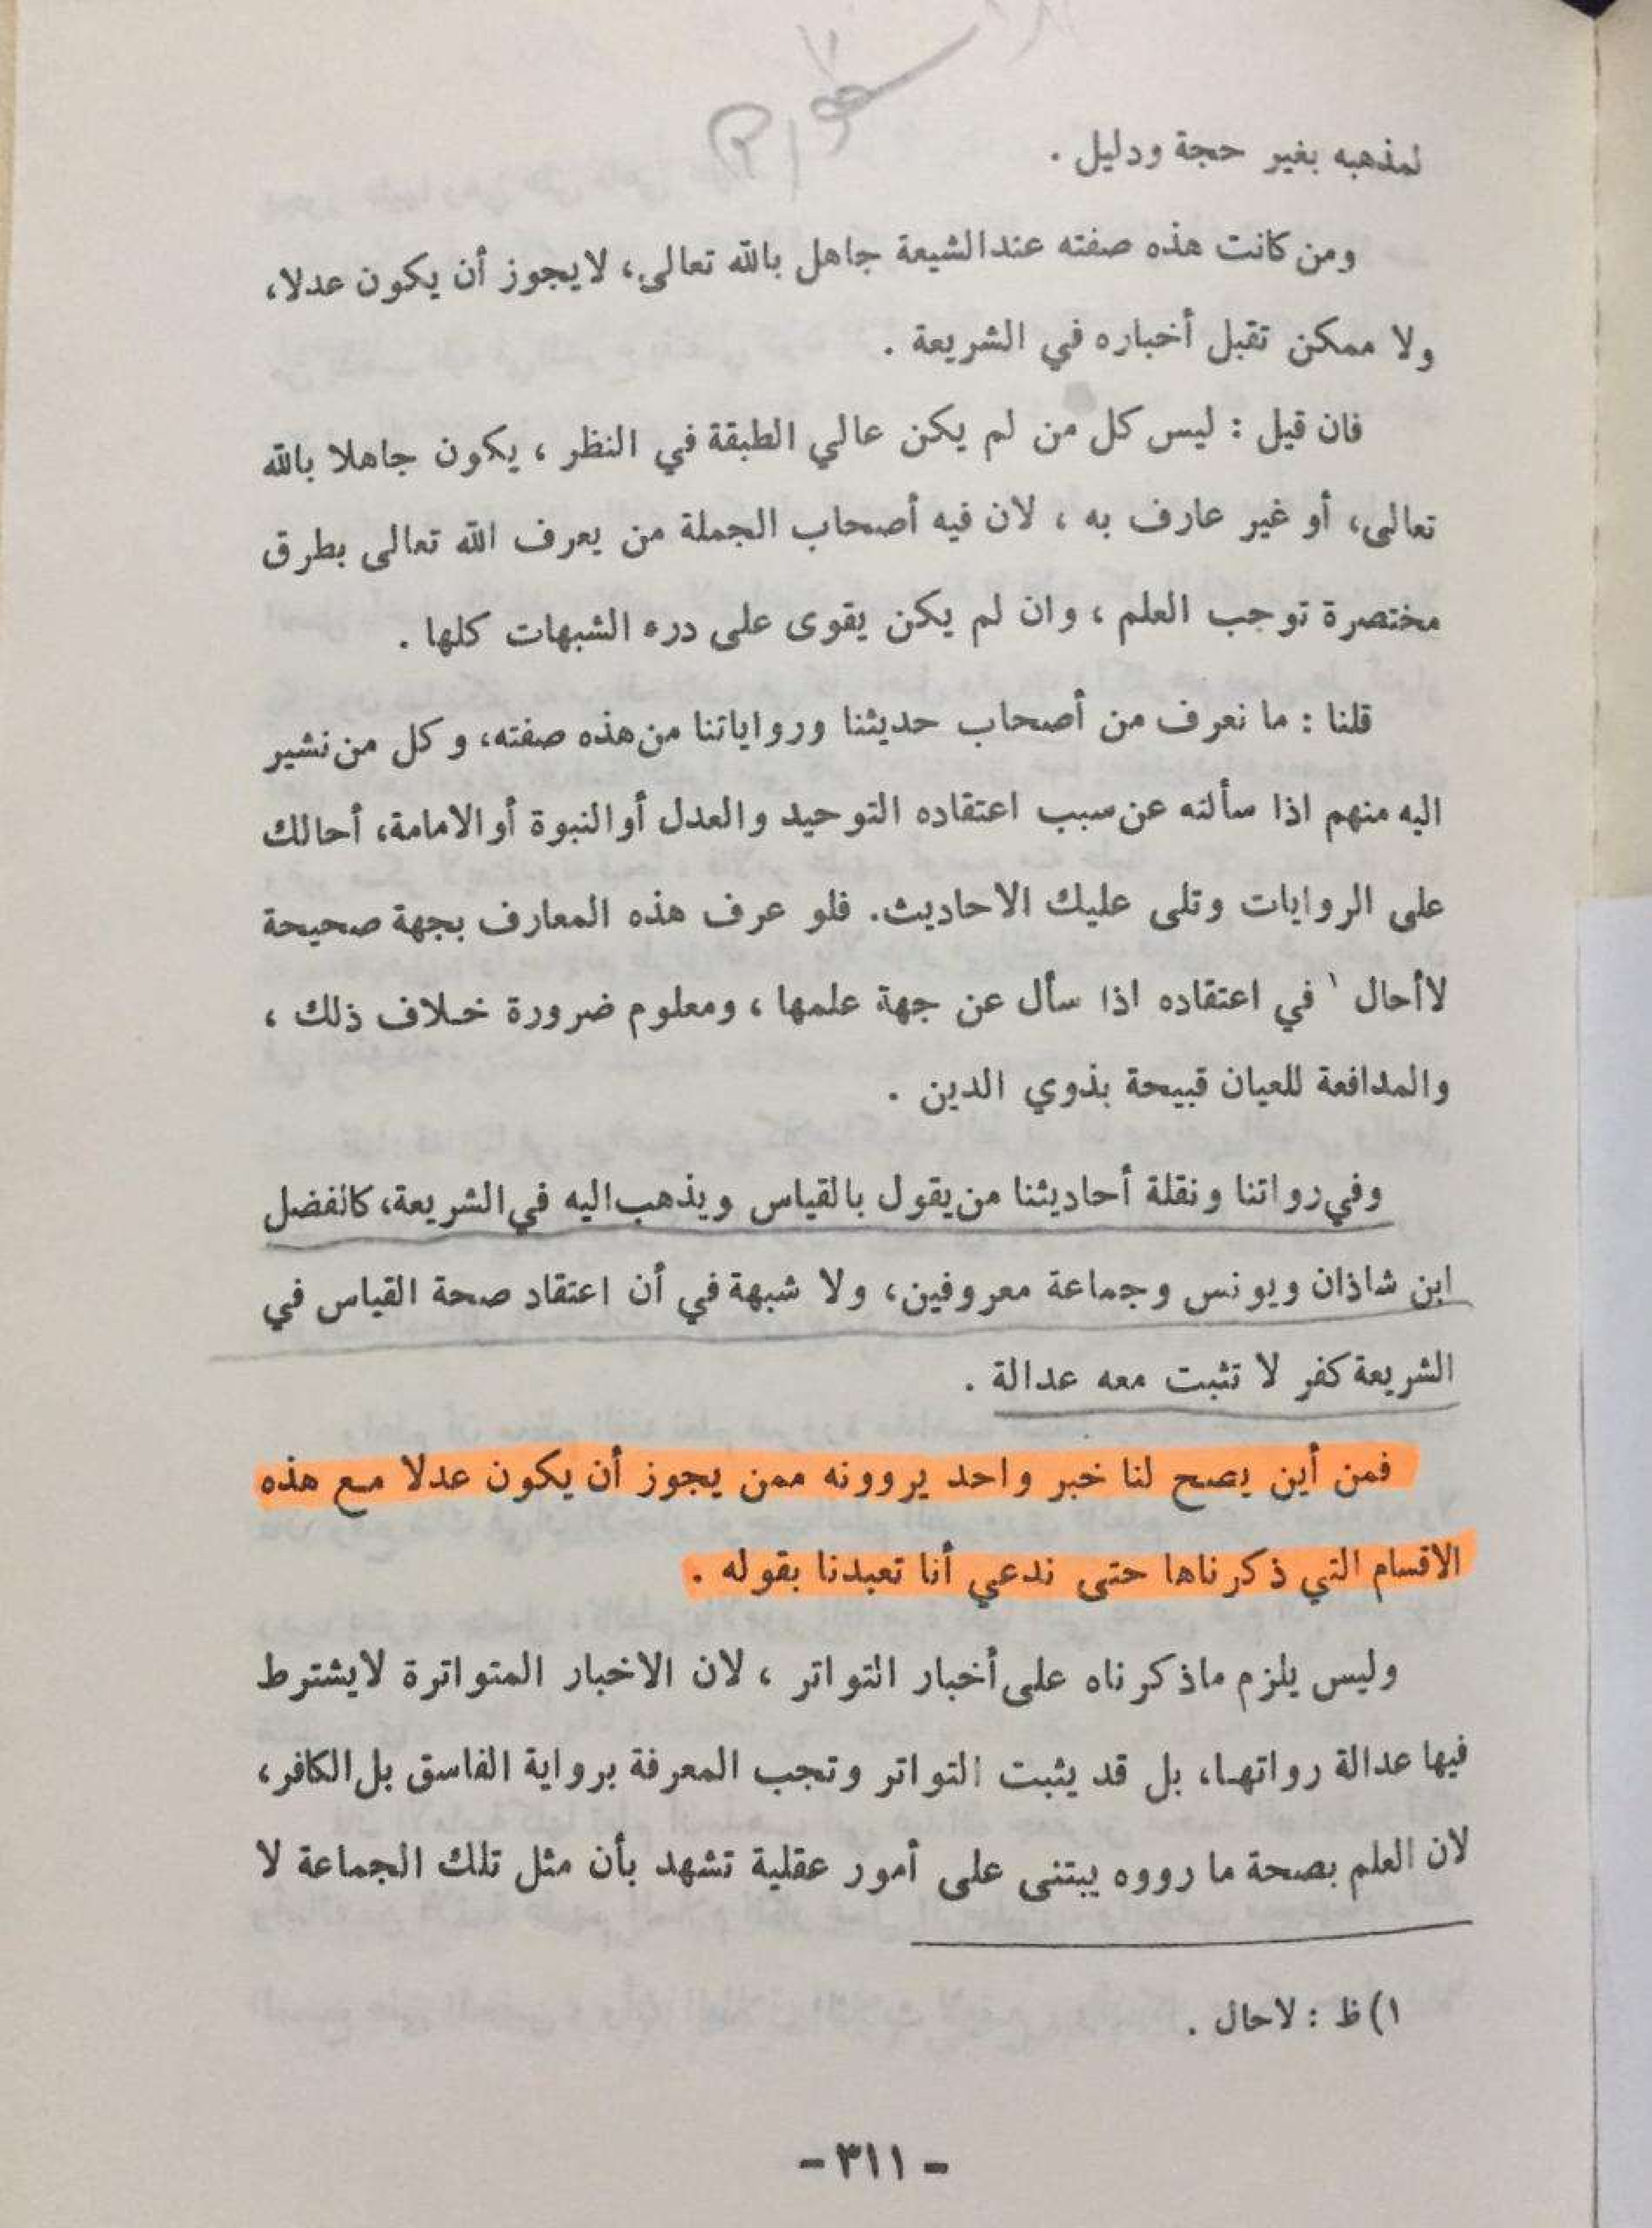 لمذهبه بغير حجة ودليل .
ومن كانت هذه صفته عند الشيعة جاهل بالله تعالى، لايجوز أن يكون عدلا،
ولا ممكن تقبل أخباره في الشريعة .
فان قيل : ليس كل من لم يكن عالي الطبقة في النظر ، يكون جاهلا بالله
تعالى، أو غير عارف به ، لان فيه أصحاب الجملة من يعرف الله تعالى بطرق
مختصرة توجب العلم ، وان لم يكن يقوى على درء الشبهات كلها .
قلنا : ما نعرف من أصحاب حديثنا ورواياتنا من هذه صفته، وكل من نشير
اليه منهم اذا سألته عن سبب اعتقاده التوحيد والعدل أو النبوة أو الامامة، أحالك
على الروايات وتلى عليك الاحاديث. فلو عرف هذه المعارف بجهة صحيحة
لاأحال ١ في اعتقاده اذا سأل عن جهة علمها ، ومعلوم ضرورة خلاف ذلك ،
والمدافعة للعيان قبيحة بذوي الدين .
وفي رواتنا ونقلة أحاديثنا من يقول بالقياس ويذهب اليه في الشريعة، كالفضل
ابن شاذان ويونس وجماعة معروفين، ولا شبهة في أن اعتقاد صحة القياس في
الشريعة كفر لا تثبت معه عدالة .
فمن أين يصح لنا خبر واحد يروونه ممن يجوز أن يكون عدلا مع هذه
الاقسام التي ذكرناها حتى ندعي أنا تعبدنا بقوله .
وليس يلزم ماذكرناه على أخبار التواتر ، لان الاخبار المتواترة لايشترط
فيها عدالة رواتها، بل قد يثبت التواتر وتجب المعرفة برواية الفاسق بل الكافر،
لان العلم بصحة ما رووه يبتنى على أمور عقلية تشهد بأن مثل تلك الجماعة لا
١) ظ : لاحال .
- ٣١١ -